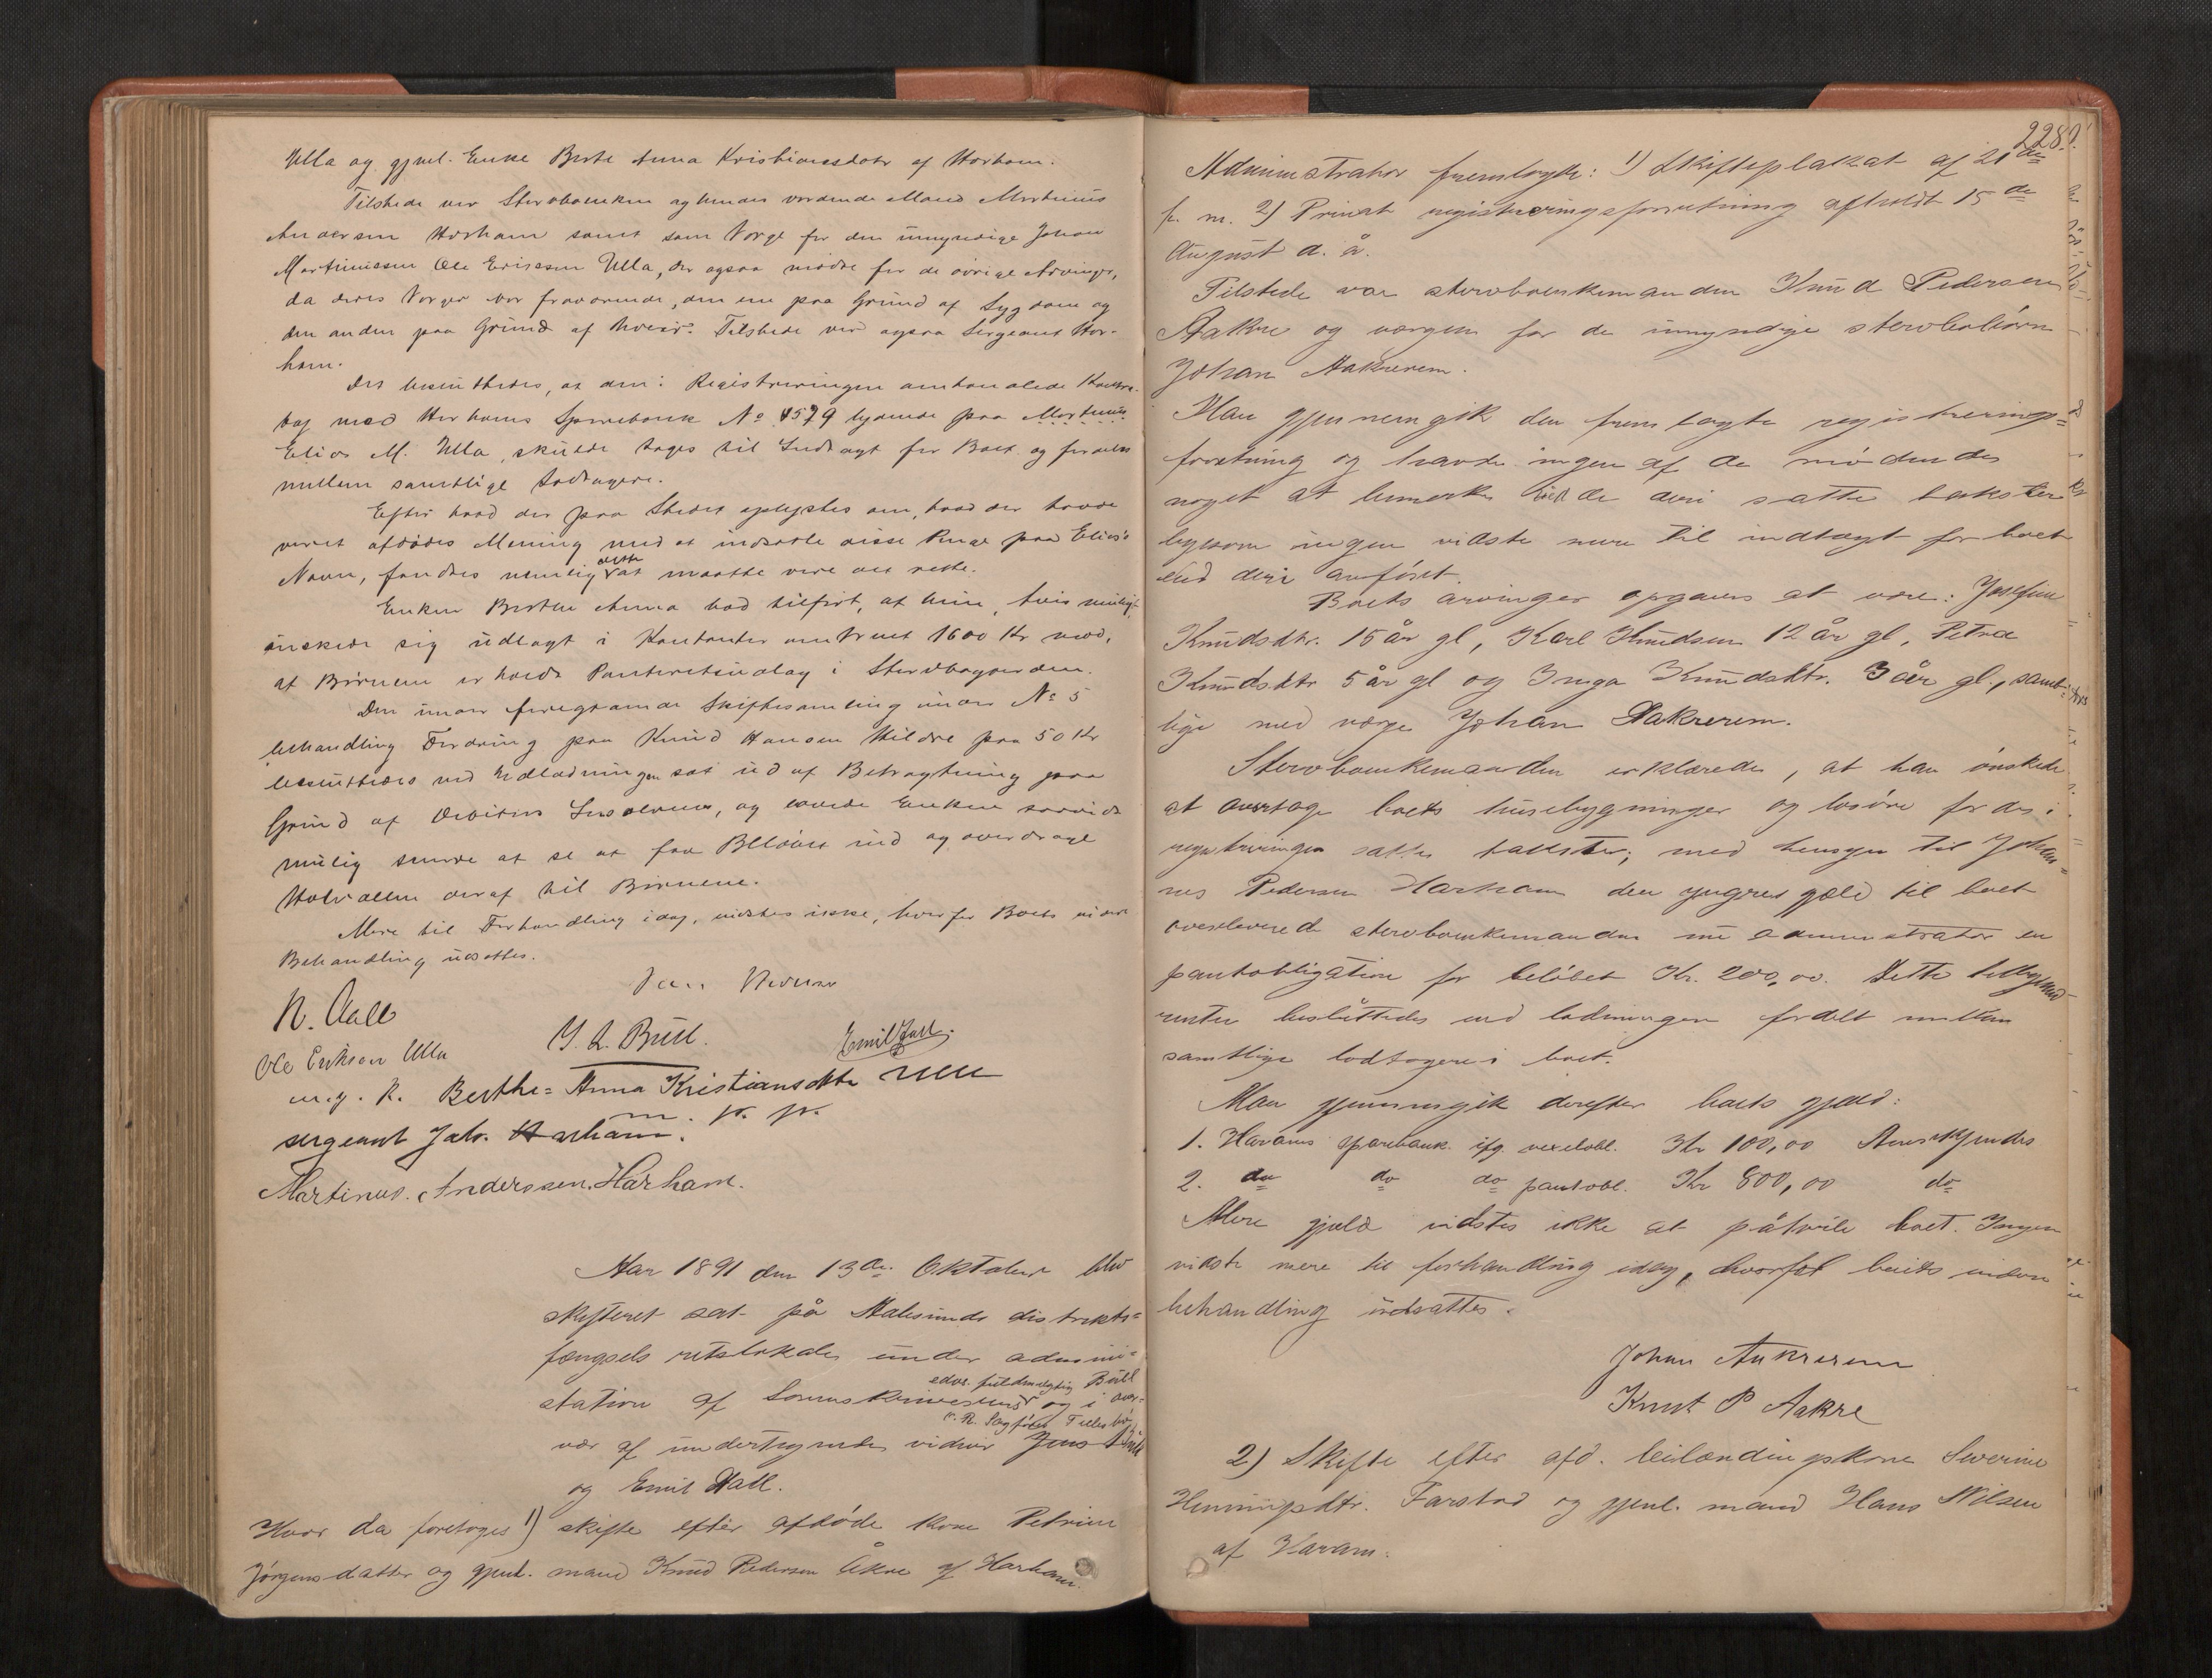 Ulla og gjenl. Enke Berte Anna Kristiansdatr af Harham.
Tilstede var Stervboenken og hendes vordende Mand Martinus
Andersen Harham samt som Verge for den umyndige Johan
Martinussen Ole Eriksen Ulla, der ogsaa mødte for de øvrige Arvinger,
da deres Verger var fraværende, den ene paa Grund af Sygdom og
den anden paa Grund af . Tilstede var ogsaa Sergeant Har-
ham.
Det besluttedes, at den i Registreringen omhandlede Kontra-
bog med Harhams Sparebank No 4579 lydende paa Martinus
Elias M. Ulla, skulde tages til Indtægt for Boet og fordeles
mellem samtlige Lodtagere.
Efter hvad der paa Stedet oplystes om, hvad der havde
været afdødes Mening med at indsætte disse Penge paa Elias's
Navn, fandtes nemlig dette at maatte være det rette.
Enken Berthe Anna bad tilført, at hun, hvis muligt,
ønskede sig udlagt i Kontanter omtrent 1600 Kr mod,
at Børnene erholdt Panteretsudlæg i Stervbogaarden.
Den under foregaaende Skiftesamling under No 5
behandling Fordring paa Knud Hansen Hildre paa 50 Kr
besluttedes ved Udlodningen sat ud af Betragtning paa
Grund af Debitors Insolvens, og lovede Enken saavidt
mulig kunde at se at faa Beløbet ind og overdrage
Halvdelen deraf til Børnene.
Mere til Forhandling idag, vidstes ikke, hvorfor Boets videre
Behandling udsattes.
N. Aall
J. L. Bull.
Emil Hall.
Ole Eriksen Ulla
m. p. P. Berthe=Anna Kristiansdttr Ulla
m. p. p.
sergeant Joh. Harham.
Martinus. Anderssen. Harham.
Aar 1891 den 13de Oktober blev
skifteret sat på Aalesunds distrikts=
fængsels retslokale under admini=
station af Sorenskriveren ved edsv. fuldmægtig Bull og i over-
vær af undertegnede vidner Jens
og Emil Hall.
Hvor da foretoges 1) skifte efter afdøde kone Petrine
Jørgensdatter og gjenl. mand Knud Pedersen Åkre af Harham.
228.
Administrator fremlagde: 1) Skifteplakat af 21de
f. m. 2) Privat registreringsforretning afholdt 15de
August d. å.
Tilstede var stervboenkemanden Knud Pedersen
Aakre og værgen for de umyndige stervbobørn
Johan Aakrerem.
Man gjennemgik den fremlagte registrerings=
forretning og havde ingen af de mødende
noget at bemærke ved de deri satte takster
ligesom ingen vidste mere til indtægt for boet
end deri anført.
Boets arvinger opgaves at være: Josefine
Knudsdtr. 15 år gl, Karl Knudsen 12 år gl, Petra
Knudsdtr 5 år gl og Inga Knudsdtr. 3 år gl., samt-
lige med værge Johan Aakrerem.
Stervboenkemanden erklærede, at han ønskede
at overtage boets husebygninger og løsøre for de i
registreringen satte takster; med hensyn til Johan-
nes Pedersen Harham den yngres gjæld til boet
overleverede stervboenkemanden nu administrator en
pantobligation for beløbet Kr. 200,00. Dette tilligemed
renter besluttedes ved lodningen fordelt mellem
samtlige lodtagere i boet.
Man gjennemgik derefter boets gjæld:
1. Harams sparebank ifg vexelobl. Kr 100,00 Anerkjendes
2. do do do pantobl. Kr 800,00 do
Mere gjæld vidstes ikke at påhvile boet. Ingen
vidste mere til forhandling idag, hvorfor boets videre
behandling udsattes.
Johan Aakrerem
Knut P Aakre
2) Skifte efter afd. leilændingskone Severine
Henningsdtr. Farstad og gjenl. mand Hans Nilsen
af Haram.